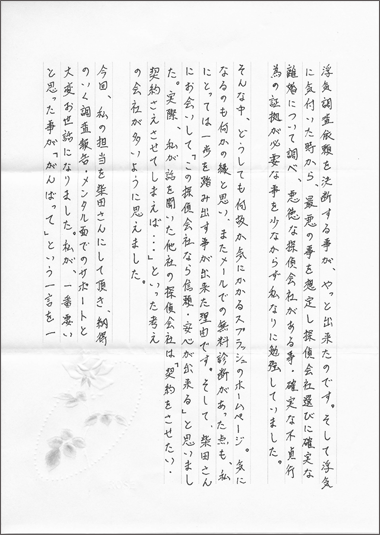 浮気調査依頼を決断する事が、やっと出来たのです。そして浮気
に気付いた時から、最悪の事を想定し探偵会社選びに確定な
離婚について調べ、悪徳な探偵会社がある事・確定な不貞行
為の証拠が必要な事を少なからず私なりに勉強していました。
そんな中、どうしても何故か気にかかるスプラッシュのホームページ。気に
なるのも何かの縁と思い、またメールでの無料診断があった点も、私
にとっては一歩を踏み出す事が出来た理由です。そして、柴田さん
にお会いして「この探偵会社なら信頼・安心が出来る」と思いまし
た。実際、私が話を聞いた他社の探偵会社は「契約をさせたい・
契約さえさせてしまえば・・・」といった考え
の会社が多いように思えました。
今回、私の担当を柴田さんにして頂き、納得
のいく調査報告・メンタル面でのサポートと
大変お世話になりました。私が、一番重い
と思った事が「がんばって」という一言を一